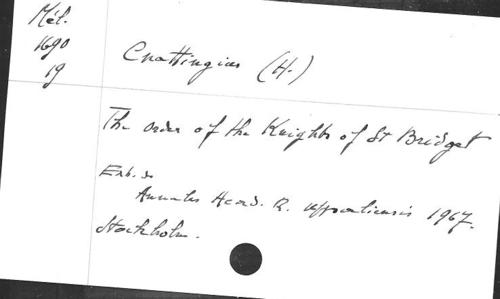 Mél.
1690
19
Cnattingius (H.)
The order of the Knights of St Bridget
Extr. de
Annales Acad. R. Upsaliensis 1967.
Stockholm.